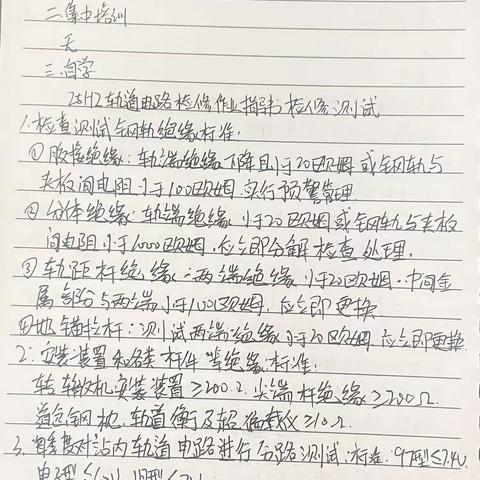 二.集中培训
无
三.自学
25HZ轨道电路检修作业指导书检修测试
1.检查测试钢轨绝缘标准:
①胶接绝缘:轨端绝缘下降且小于20欧姆或钢轨与
夹板间电阻小于100欧姆,实行预警管理
②分体绝缘:轨端绝缘小于20欧姆或钢轨与夹板
间电阻小于1000欧姆,应立即分解检查处理.
③轨距杆绝缘:两端绝缘小于20欧姆,中间金
属部份与两端小于10欧姆,应立即更换
④地锚拉杆:测试两端绝缘小于20欧姆应立即更换
2:安装装置和各类杆件等绝缘标准:
转辙机安装装置≥200Ω.尖端杆绝缘≥200Ω.
道岔钢枕、轨道衡及超偏载仪≥10Ω.
3.每季度对站内轨道电路进行分路测试:标准:97型≤7.4V.